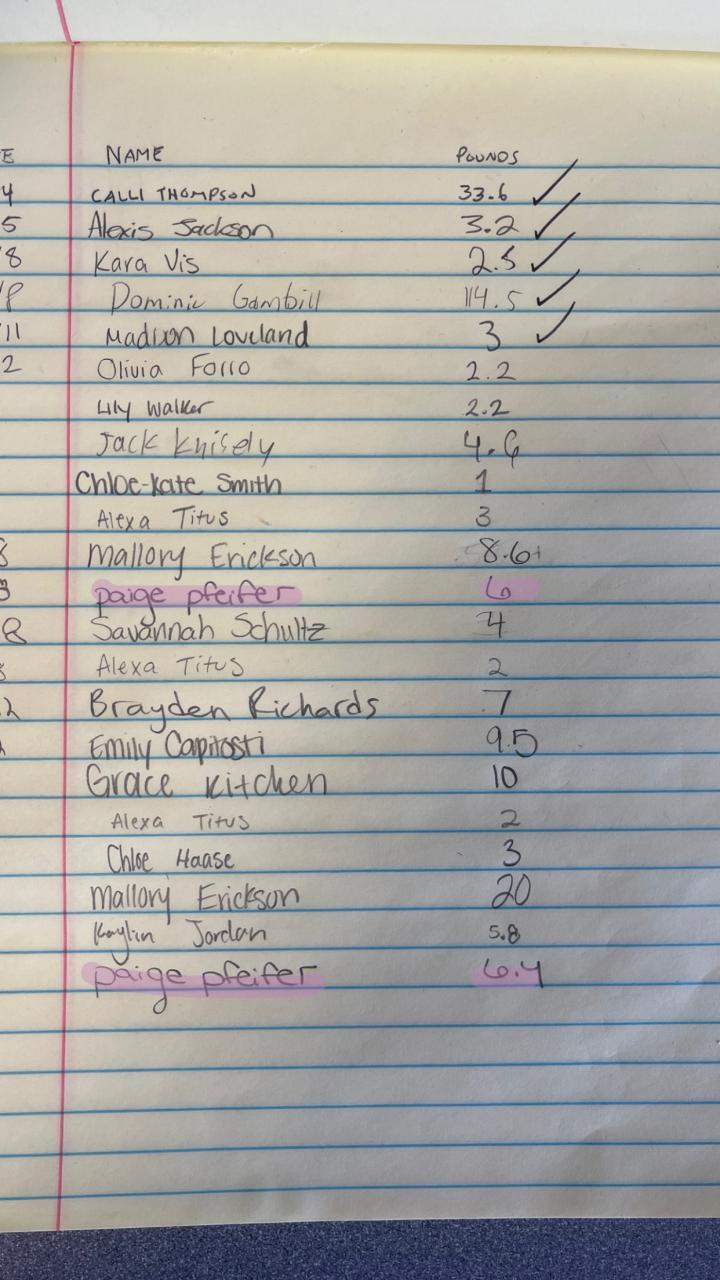 E NAME POUNDS
4 CALLI THOMPSON 33.6 ✓
5 Alexis Jackson 3.2 ✓
8 Kara Vis 2.5 ✓
8 Dominic Gambill 114.5 ✓
11 Madison Loveland 3 ✓
2 Olivia Forro 2.2
Lily Walker 2.2
Jack Knisely 4.6
Chloe-Kate Smith 1
Alexa Titus 3
8 Mallory Erickson 8.6
3 paige pfeifer 6
8 Savannah Schultz 4
8 Alexa Titus 2
2 Brayden Richards 7
Emily Capitosti 9.5
Grace Kitchen 10
Alexa Titus 2
Chloe Haase 3
Mallory Erickson 20
Kaylin Jordan 5.8
paige pfeifer 6.4